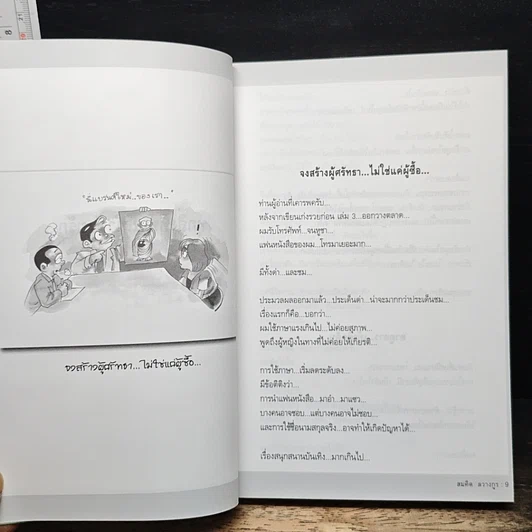 "นี่แบรนด์ใหม่..ของเรา.."
จงสร้างผู้ศรัทธา...ไม่ใช่แค่ผู้ซื้อ...
จงสร้างผู้ศรัทธา...ไม่ใช่แค่ผู้ซื้อ...
ท่านผู้อ่านที่เคารพครับ...
หลังจากเขียนเก่งรวยก่อน เล่ม 3...ออกวางตลาด...
ผมรับโทรศัพท์...จนหูชา...
แฟนหนังสือของผม...โทรมาเยอะมาก...
มีทั้งด่า...และชม...
ประมวลผลออกมาแล้ว...ประเด็นด่า...น่าจะมากกว่าประเด็นชม...
เรื่องแรกก็คือ...บอกว่า...
ผมใช้ภาษาแรงเกินไป...ไม่ค่อยสุภาพ...
พูดถึงผู้หญิงในทางที่ไม่ค่อยให้เกียรติ...
การใช้ภาษา...เริ่มลดระดับลง...
มีข้อติติงว่า...
การนำแฟนหนังสือ...มาอำ...มาแซว...
บางคนอาจชอบ...แต่บางคนอาจไม่ชอบ...
และการใช้ชื่อนามสกุลจริง...อาจทำให้เกิดปัญหาได้...
เรื่องสนุกสนานบันเทิง...มากเกินไป...
9